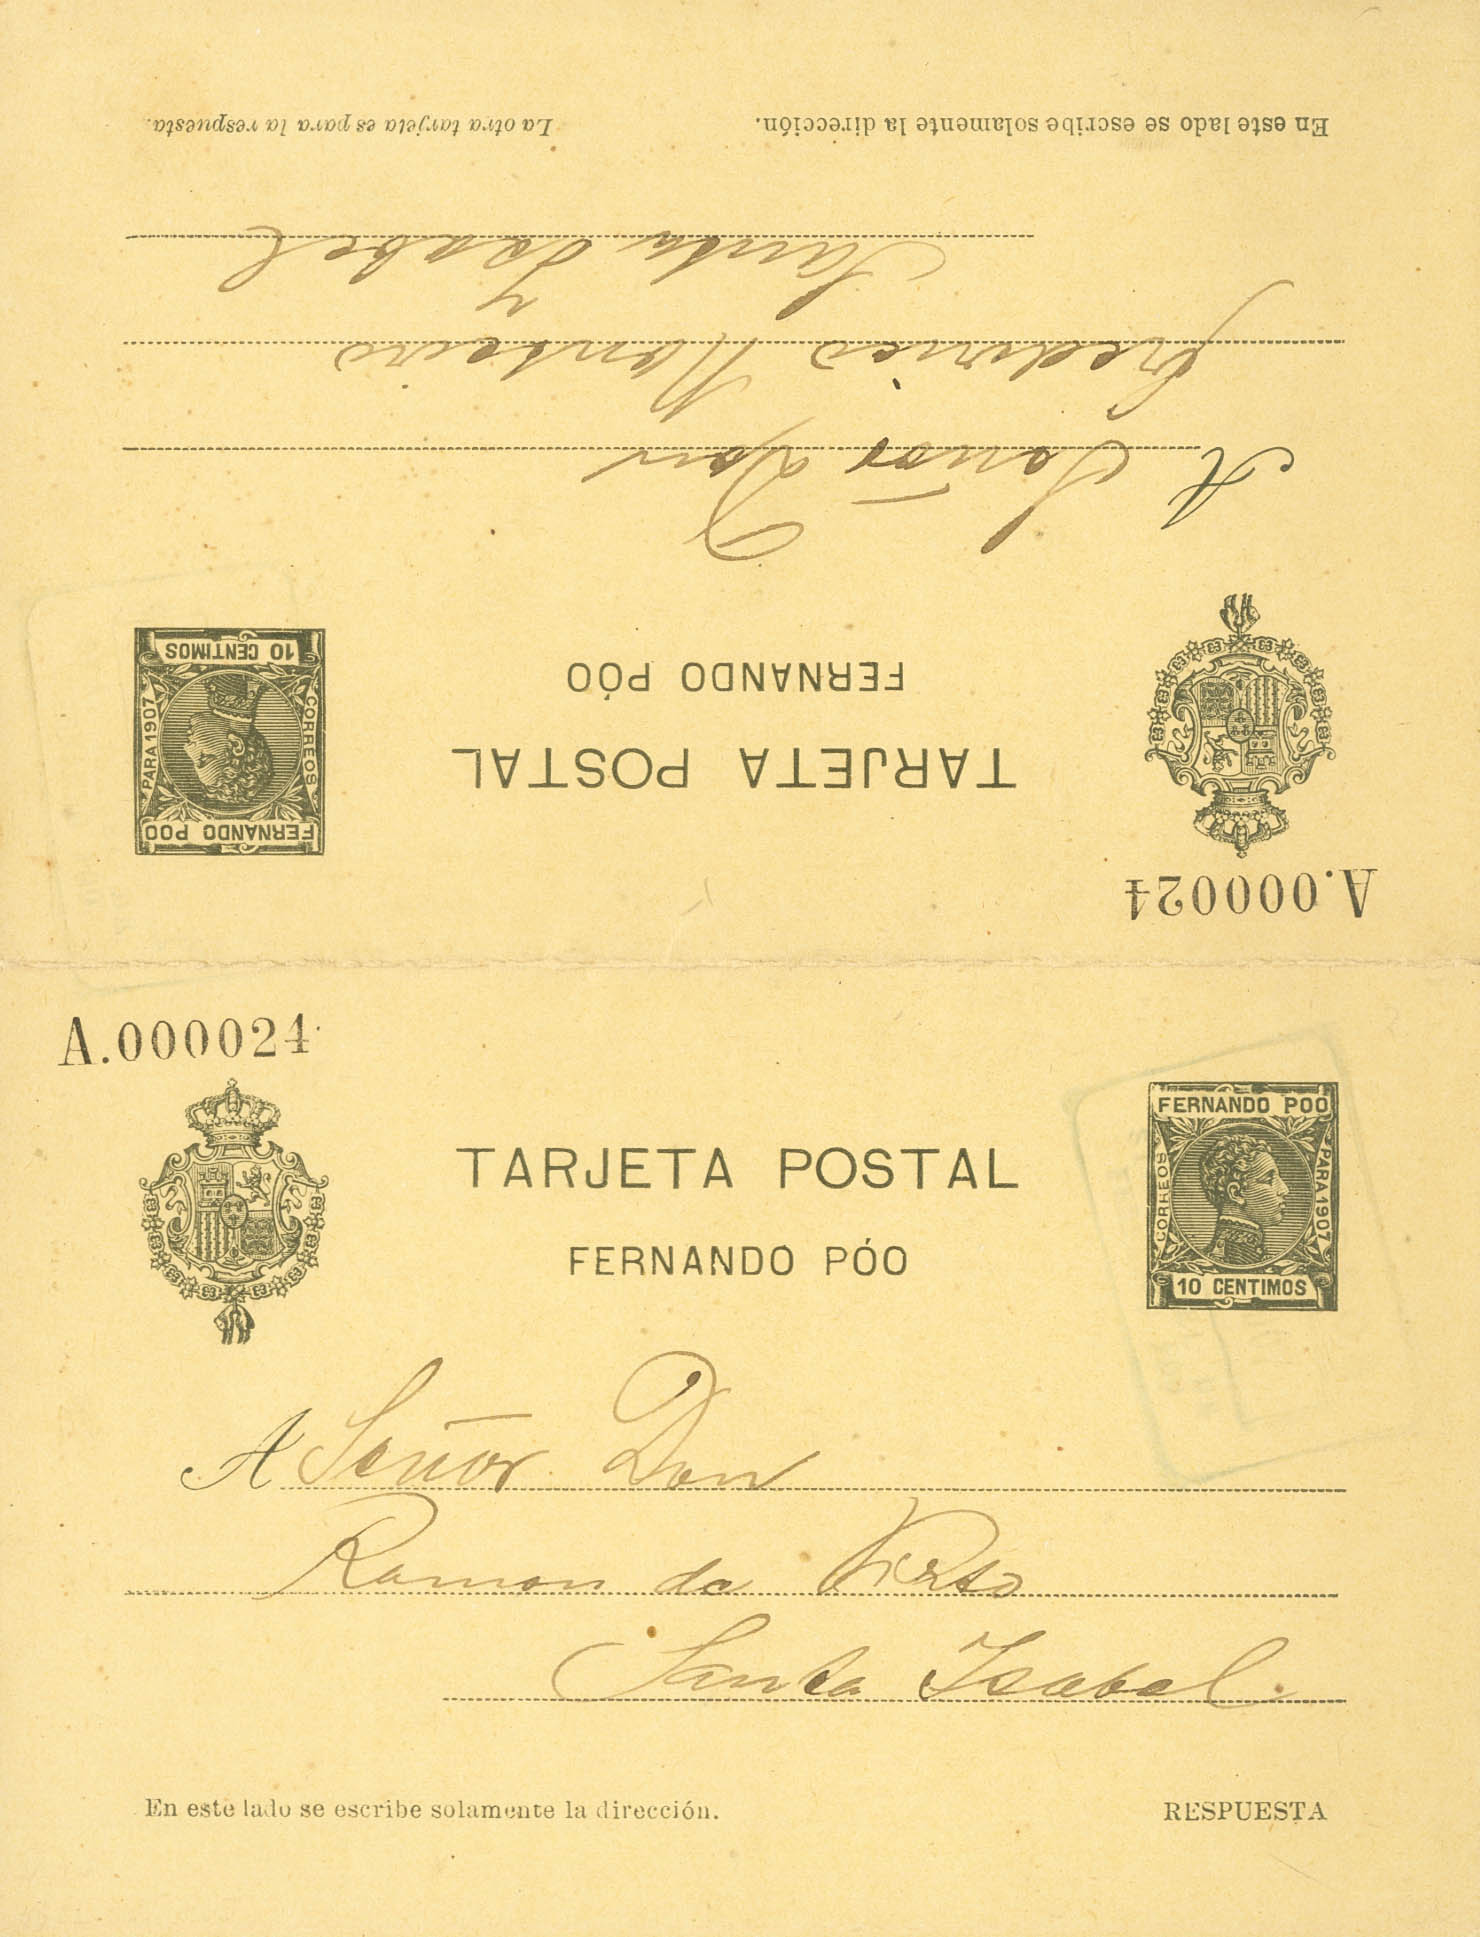 A.000024
TARJETA POSTAL
FERNANDO PÓO
FERNANDO POO
CORREOS
PARA 1907
10 CENTIMOS
A Señor Don
Federico Monteiro
Santa Isabel
En este lado se escribe solamente la dirección.
La otra tarjeta es para la respuesta.
A.000024
TARJETA POSTAL
FERNANDO PÓO
FERNANDO POO
CORREOS
PARA 1907
10 CENTIMOS
A Señor Don
Ramon de
Santa Isabel
En este lado se escribe solamente la dirección.
RESPUESTA